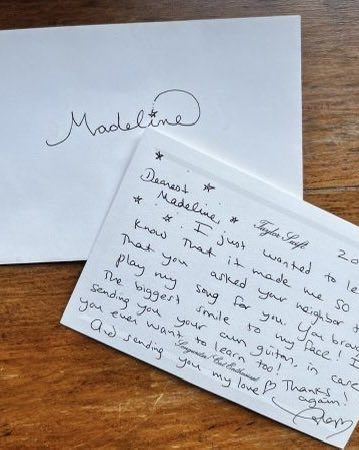 Madeline
Dearest
Madeline,
Taylor Swift
20
I just wanted to le
know that it made me so
That you asked your neighbor
play my song for you. You brou
The biggest smile to my face! I
sending you your own guitar, in case
you ever want to learn too!
Songwriter/Cat Enthusiast
And sending you my love
Thanks
again!